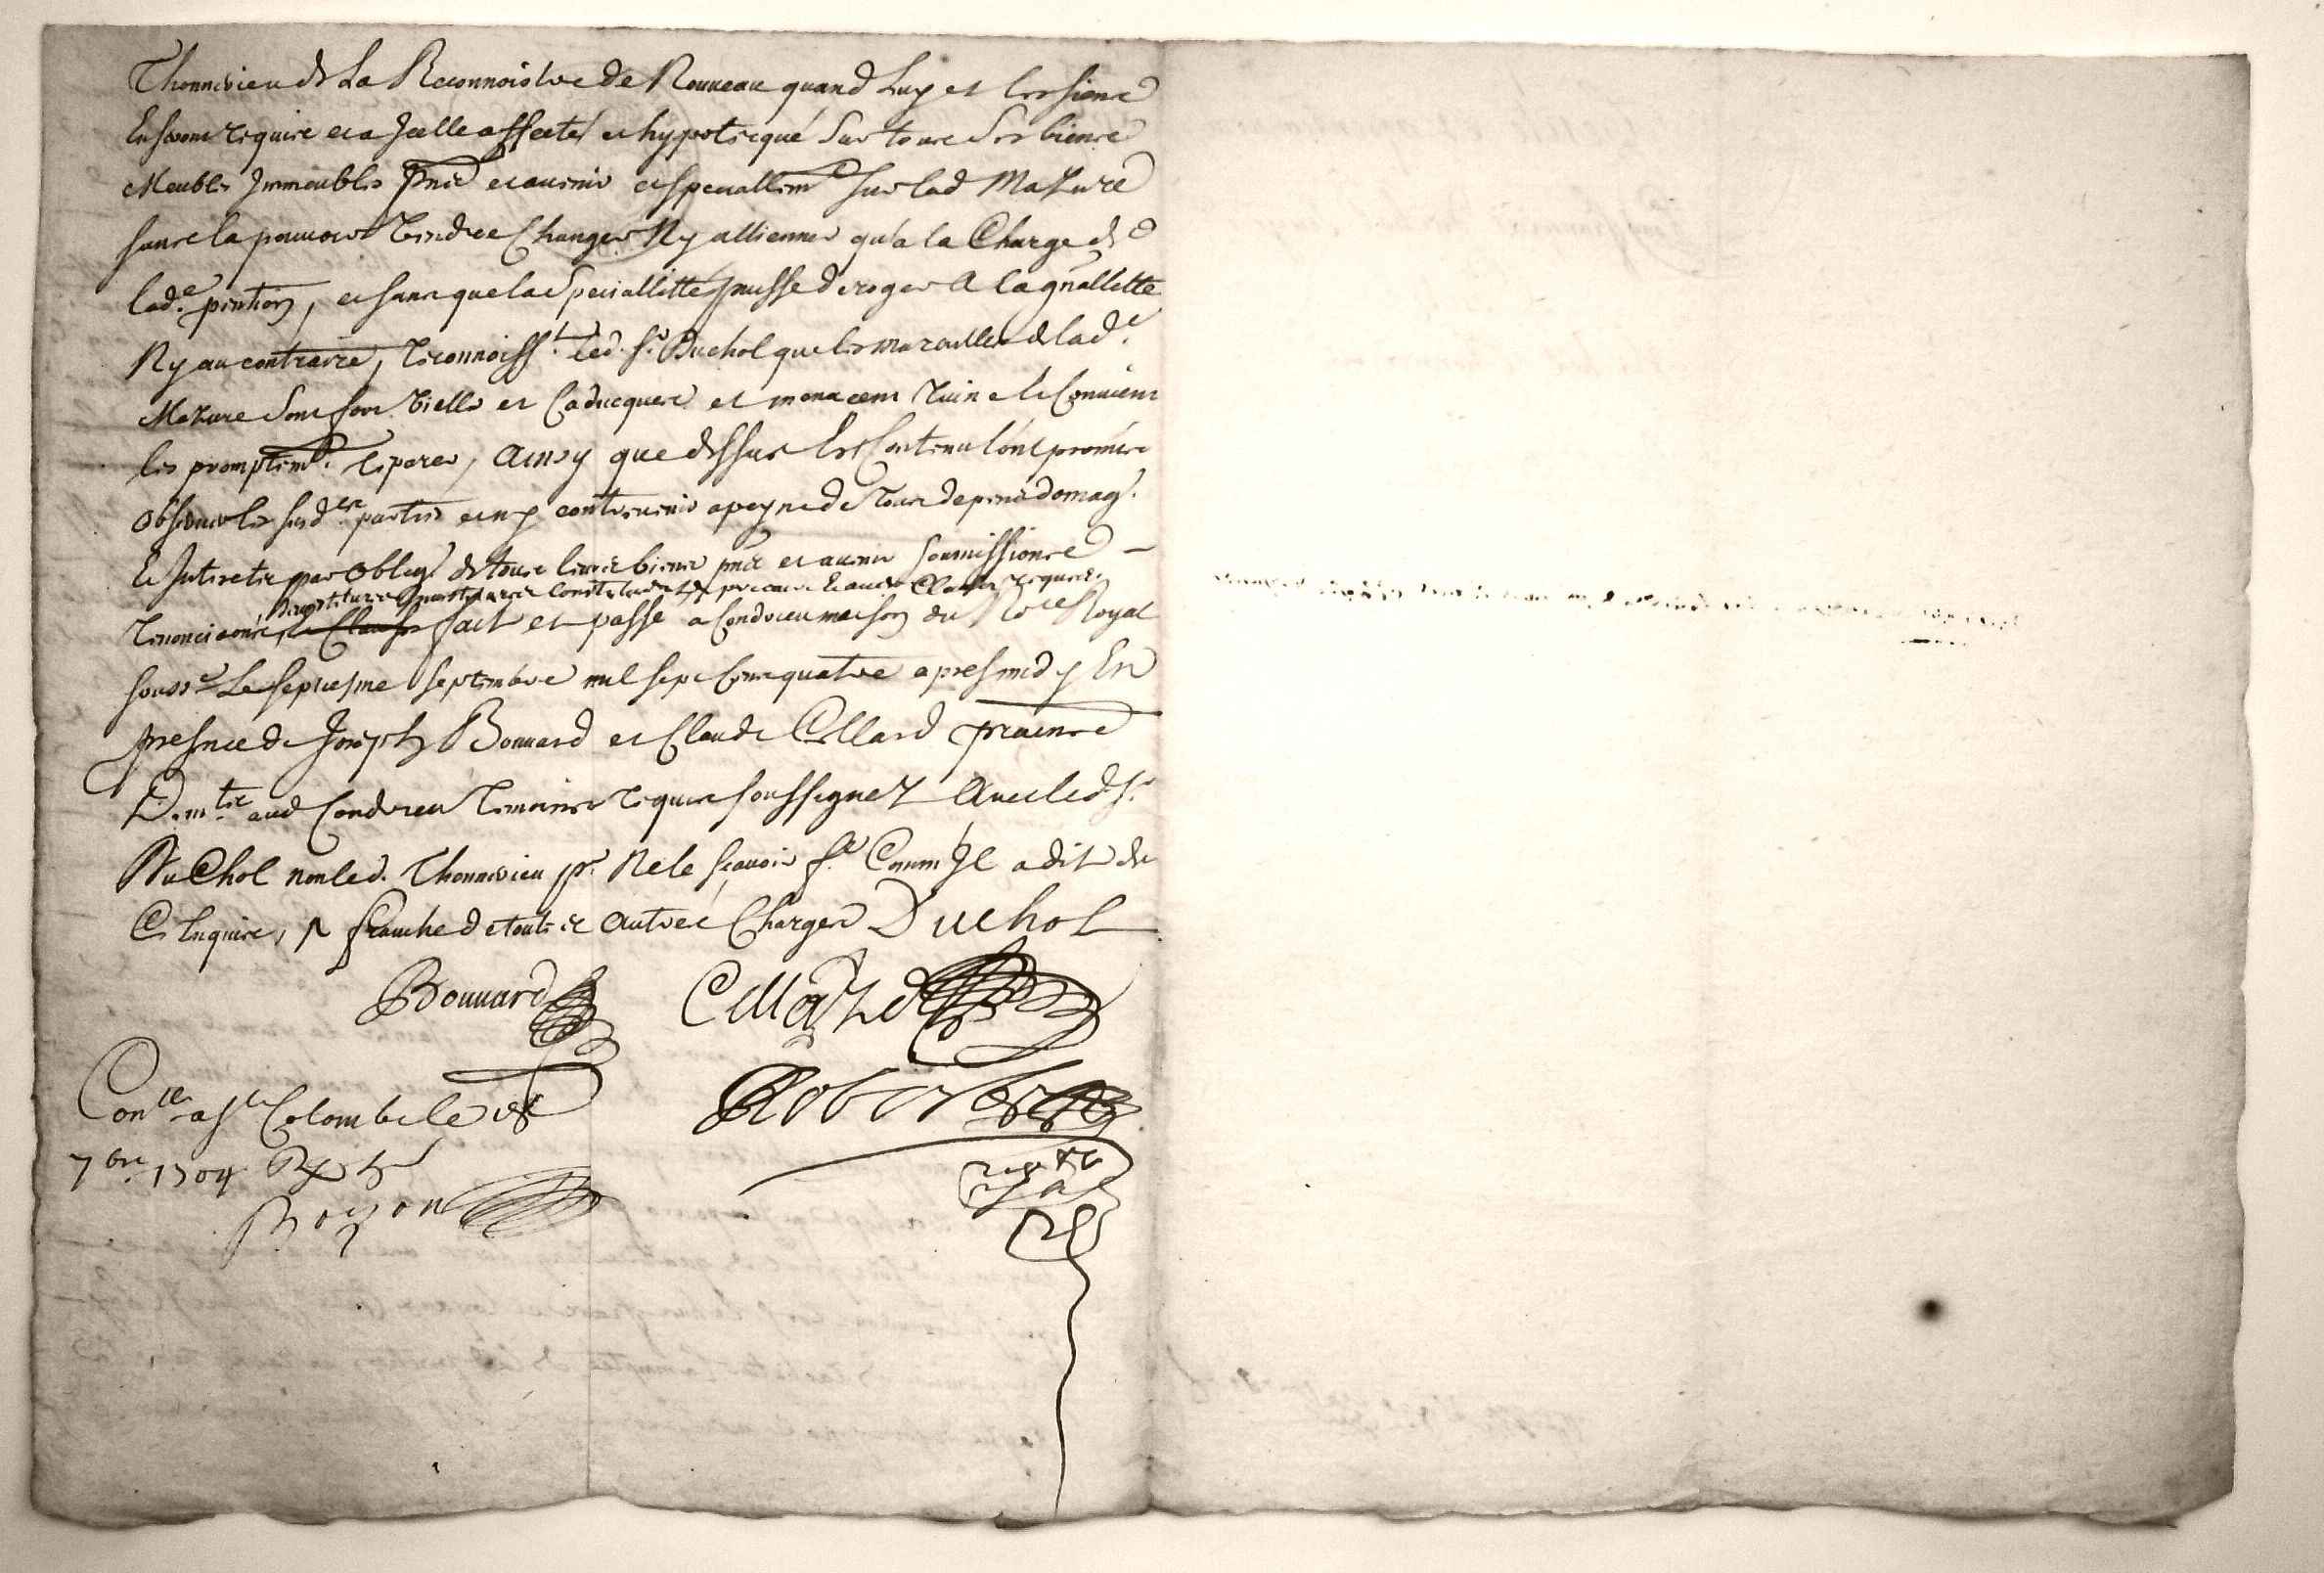 Thonnerieu de La Reconnoistre de Nouveau quand Luy et les siens
En seront requis et a Jcelle affecte et hypotecqué Sur tous Ses biens
Meubles Jmmeubles pnts et avenir et speciallemt sur lad Mazure
sans la pouvoir Vendre Changer Ny allienner qu'a la Charge de
lade. pention, et sans que la Speciallitté puisse deroger A la gnallitté
Ny au contraire, reconnoisst. led. sr. Duchol que les murailles de lade.
Mazure Sont fort Vielles et Caducques et menacent ruine Et Convient
les promptemt. reparer, Ainsy que dessus Est Contenu l'ont promis
Observer les susdes. parties et ny contrevenir a peyne de tous depens domag.
Et Jnterets par Oblig. de tous leurs biens pnts et avenir soumissions
constitution de precaire Et autres Clauses requises
renonciations, et Clauses fait et passé a Condrieu maison du Nore Royal
soussé Le septiesme septembre mil sept Cent quatre apres midy En
presnce de Joseph Bonnard et Claude Cellard pratiens
Demts. aud Condrieu Temoins requis soussignez Avec led Sr.
Du Chol non led. Thonnerieu pr. Ne le sçavoir fe. Comm Jl a dit de
Ce Enquis, franche de touttes autres Charges Duchol
Bonnard Cellard
Conlle a Ste Colombe le 18
7bre 1704 Rx 5s
Boyron